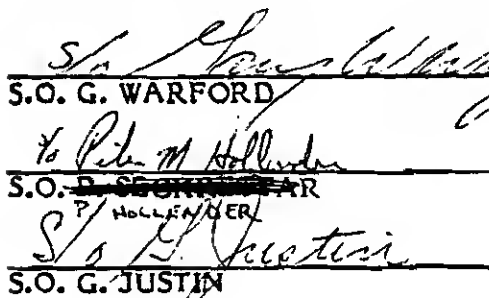 S/o Gary Warf
S.O. G. WARFORD
S/o Peter M Hollender
S.O.
P/ HOLLENDER
S/o G. Justin
S.O. G. JUSTIN